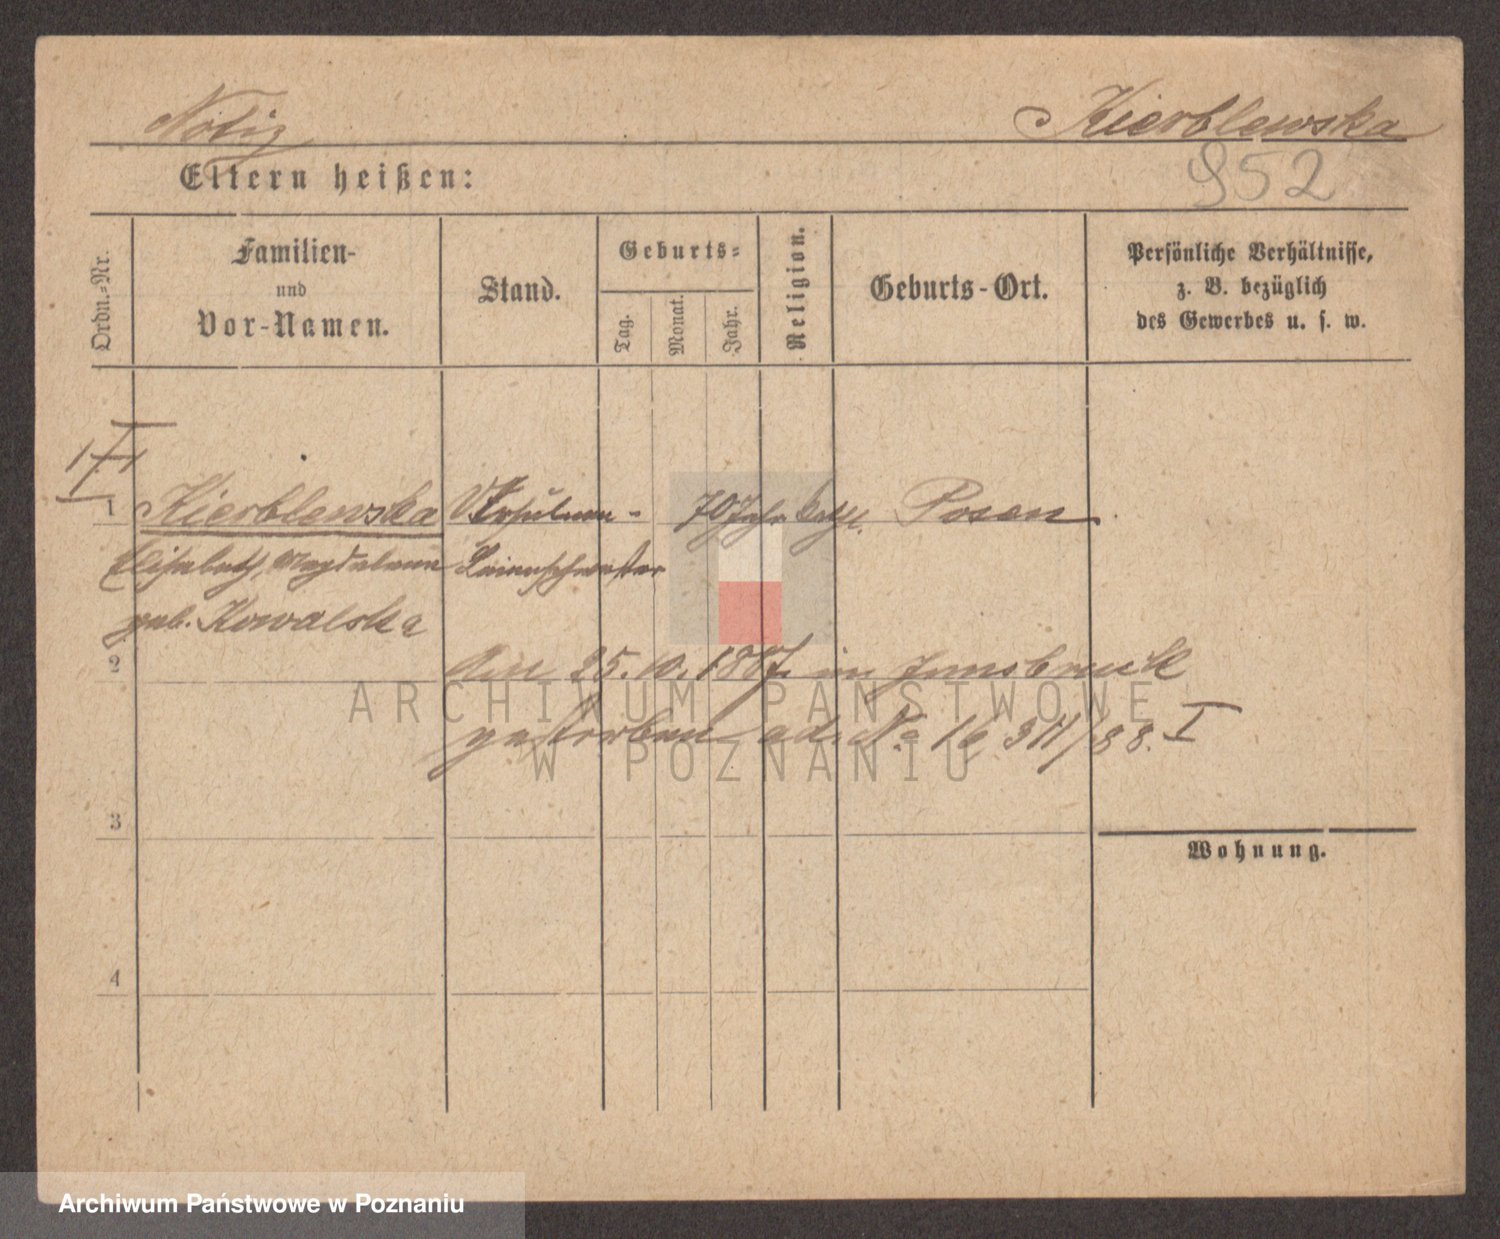 Notiz Kierblewska
952
Eltern heißen:
Ordn.-Nr.
Familien-
und
Vor-Namen.
Stand.
Geburts-
Tag.
Monat.
Jahr.
Religion.
Geburts-Ort.
Persönliche Verhältnisse,
z. B. bezüglich
des Gewerbes u. s. w.
1 Kierblewska Ursulinen- 70 Jahr kath. Posen
Elisabeth, Magdalena Laienschwester
geb. Kowalska
2
Am 25.10.1887 in Innsbruck
gestorben ad. No 16 311/88. I
3
Wohnung.
4
ARCHIWUM PAŃSTWOWE
W POZNANIU
Archiwum Państwowe w Poznaniu